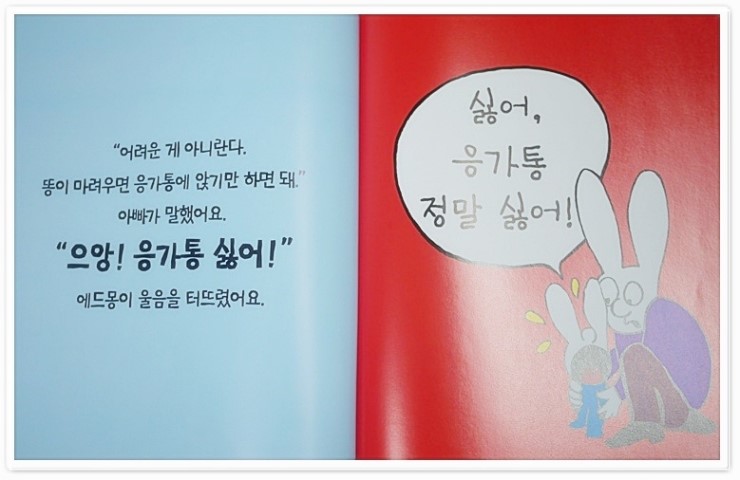 “어려운 게 아니란다.
똥이 마려우면 응가통에 앉기만 하면 돼.”
아빠가 말했어요.
“으앙! 응가통 싫어!”
에드몽이 울음을 터뜨렸어요.
싫어,
응가통
정말 싫어!